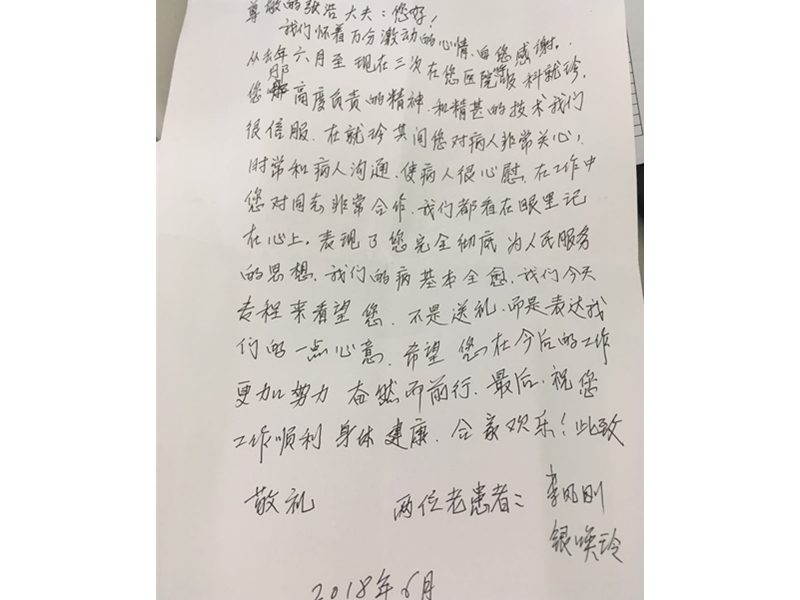 尊敬的张浩大夫：您好！
我们怀着万分激动的心情，向您感谢。
从去年六月至现在三次在您医院 科就珍，
您那高度负责的精神，和精甚的技术我们
很信服，在就珍其间您对病人非常关心，
时常和病人沟通，使病人很心慰，在工作中
您对同志非常合作，我们都看在眼里记
在心上，表现了您完全彻底为人民服务
的思想，我们的病基本全愈，我们今天
专程来看望您，不是送礼，而是表达我
们的一点心意，希望您在今后的工作
更加努力奋然而前行，最后，祝您
工作顺利身体健康，合家欢乐！此致
敬礼 两位老患者：李凤刚
银唤玲
2018年6月